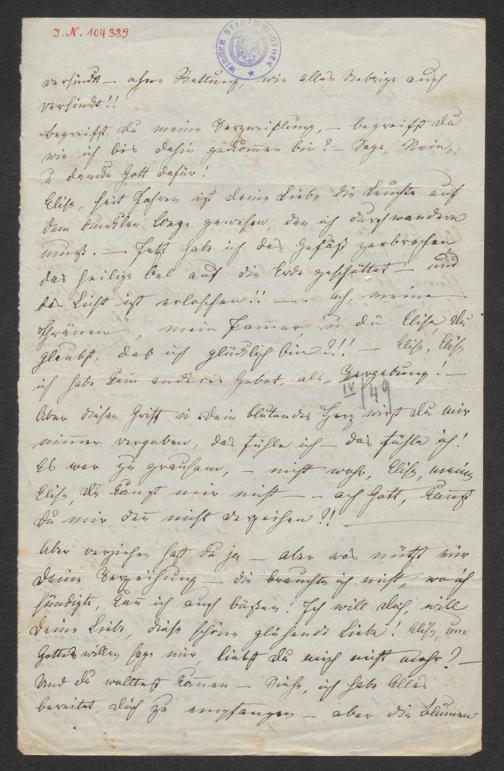 J. N. 104389
WIENER STADTBIBLIOTHEK
versinkt – ohne Rettung, wie alles Uebrige auch
versinkt!!
Begreifst Du meine Verzweiflung, – begreifst Du
wie ich bis dahin gekommen bin? – Sage „Nein“
u danke Gott dafür!
Elise, seit Jahren ist Deine Liebe die Leuchte auf
dem dunklen Wege gewesen, den ich durchwandern
muß. – Jetzt habe ich das Gefäß zerbrochen,
das heilige Oel auf die Erde geschüttet! und
das Licht ist erloschen!! – Ach, meine
Thränen mein Jammer u du Elise, Du
glaubst, daß ich glücklich bin?!! – Elise, Elise
ich habe kein anderes Gebet, als „Vergebung“! –
IV/49
Aber diesen Griff in Dein blutendes Herz wirst Du mir
nimmer vergeben, das fühle ich – das fühle ich!
Es war zu grausam, – nicht wahr, Elise, meine
Elise, Du kannst mir nicht – ach Gott, kannst
Du mir denn nicht verzeihen?!!
Aber verziehen hast Du ja – aber was nützt mir
Deine Verzeihung – die brauchte ich nicht, wo ich
sündigte, kan ich auch büßen! Ich will Dich, will
Deine Liebe, diese schöne glühende Liebe! Elise, um
Gottes willen sage mir, liebst Du mich nicht mehr? –
Und Du wolltest kommen – Siehe, ich habe Alles
bereitet, Dich zu empfangen – aber die Blumen